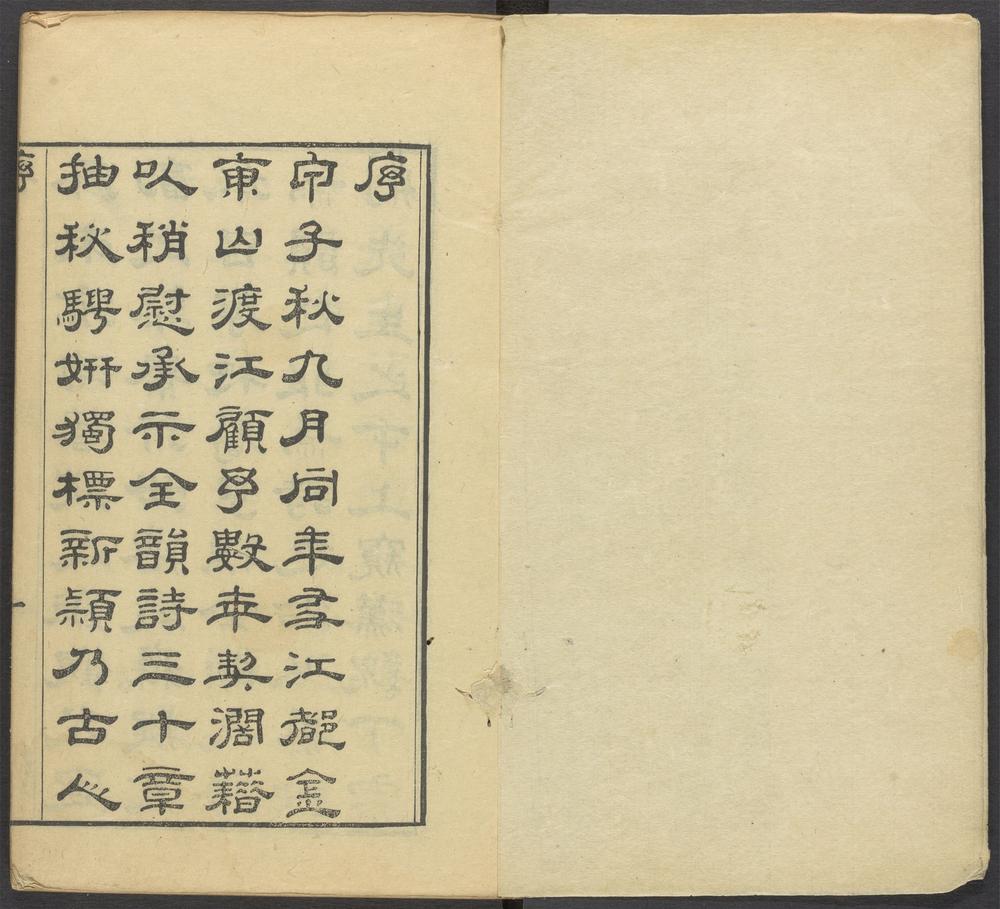 序
甲子秋九月同年友江都金
東山渡江顧予數年契闊藉
以稍慰承示全韻詩三十章
抽秘騁妍獨標新穎乃古心
序
一